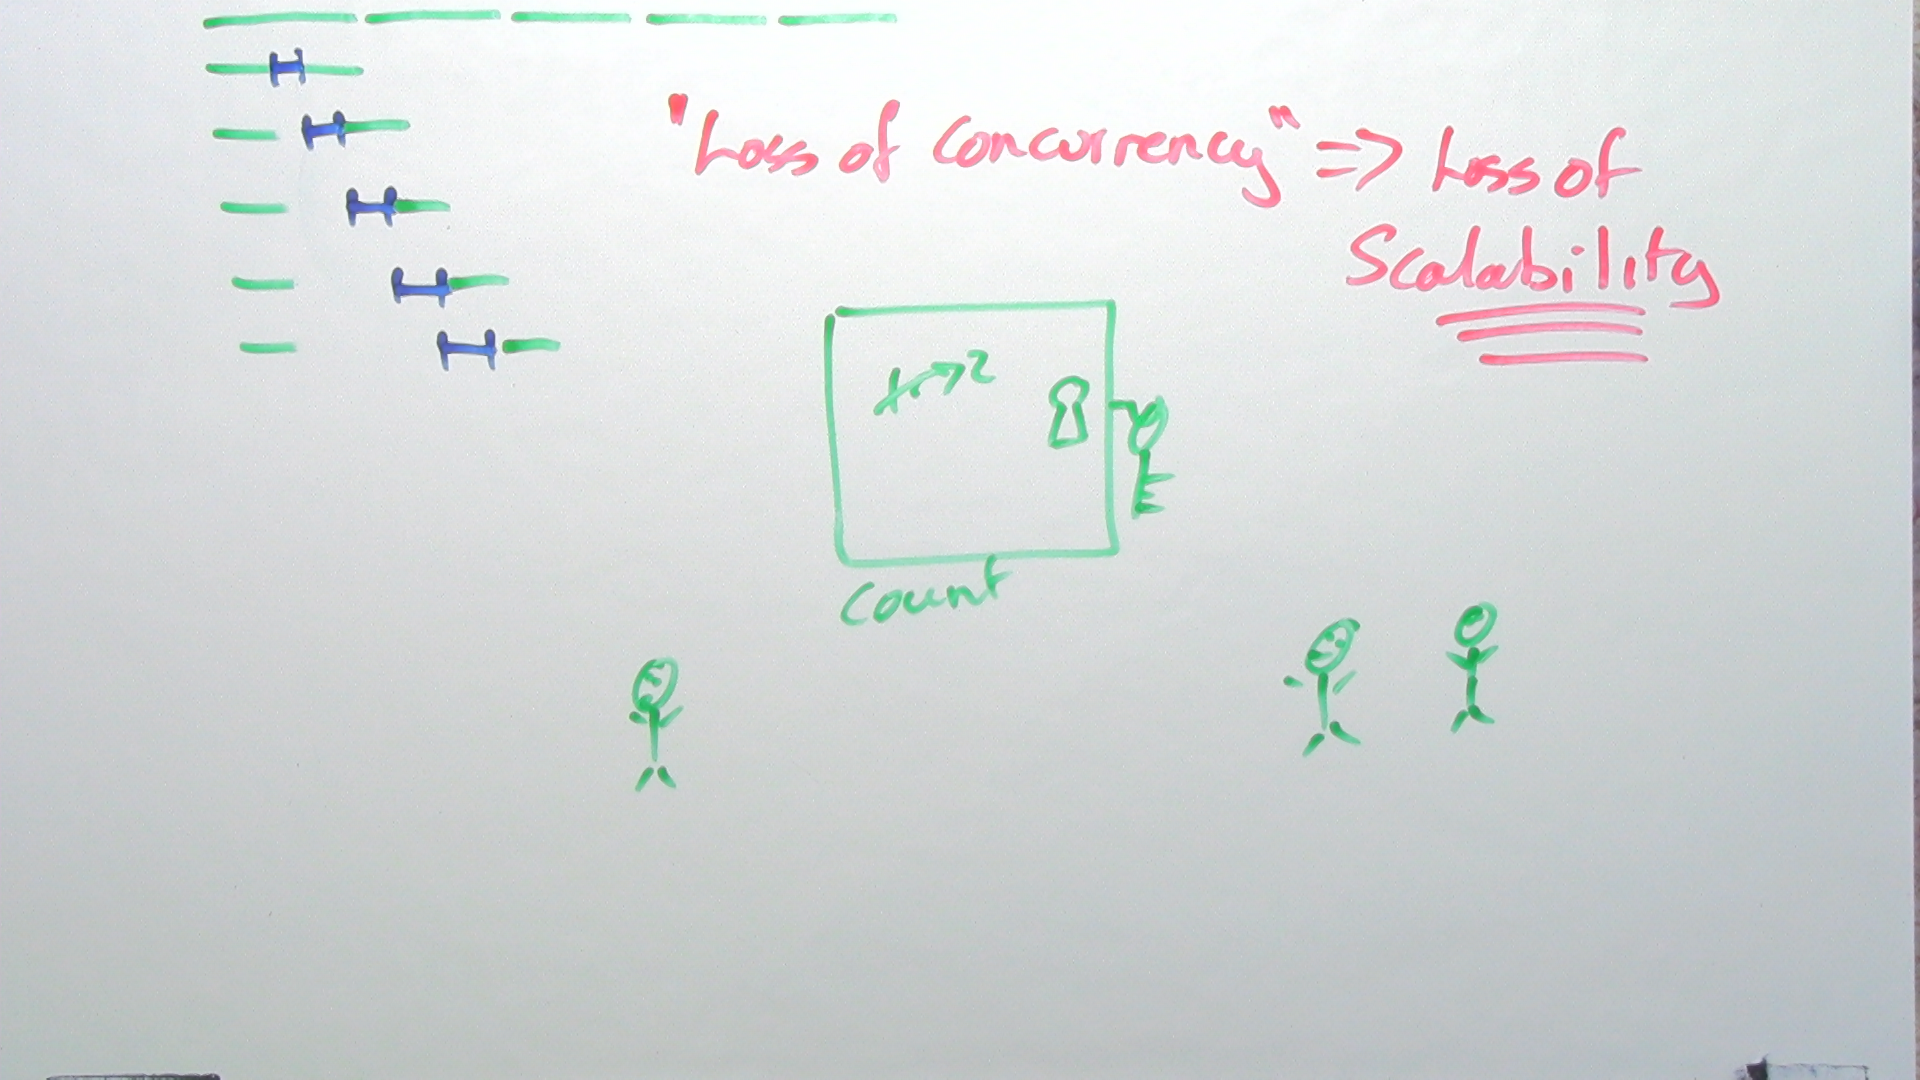 "Loss of concurrency" => Loss of
Scalability
count